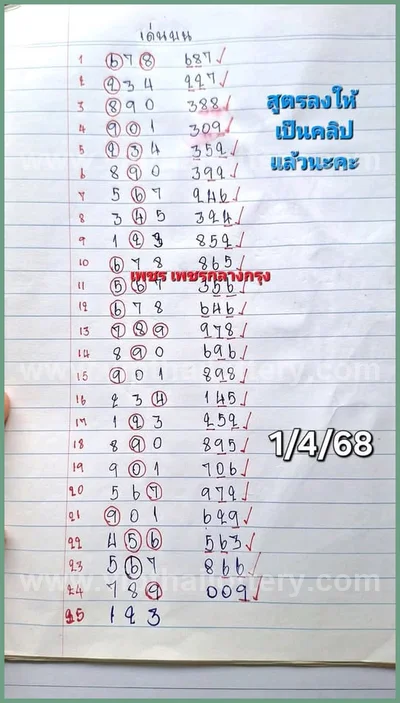 เด่นบน
1 678 687 ✓
2 234 227 ✓
3 890 388 ✓
4 901 309 ✓
5 234 352 ✓
6 890 392 ✓
7 567 246 ✓
8 345 324 ✓
9 123 852 ✓
10 678 865 ✓
11 567 356 ✓
12 678 646 ✓
13 789 978 ✓
14 890 696 ✓
15 901 898 ✓
16 234 145 ✓
17 123 252 ✓
18 890 895 ✓
19 901 706 ✓
20 567 972 ✓
21 901 629 ✓
22 456 563 ✓
23 567 866 ✓
24 789 009 ✓
25 123
สูตรลงให้
เป็นคลิป
แล้วนะคะ
เพชร เพชรกลางกรุง
1/4/68